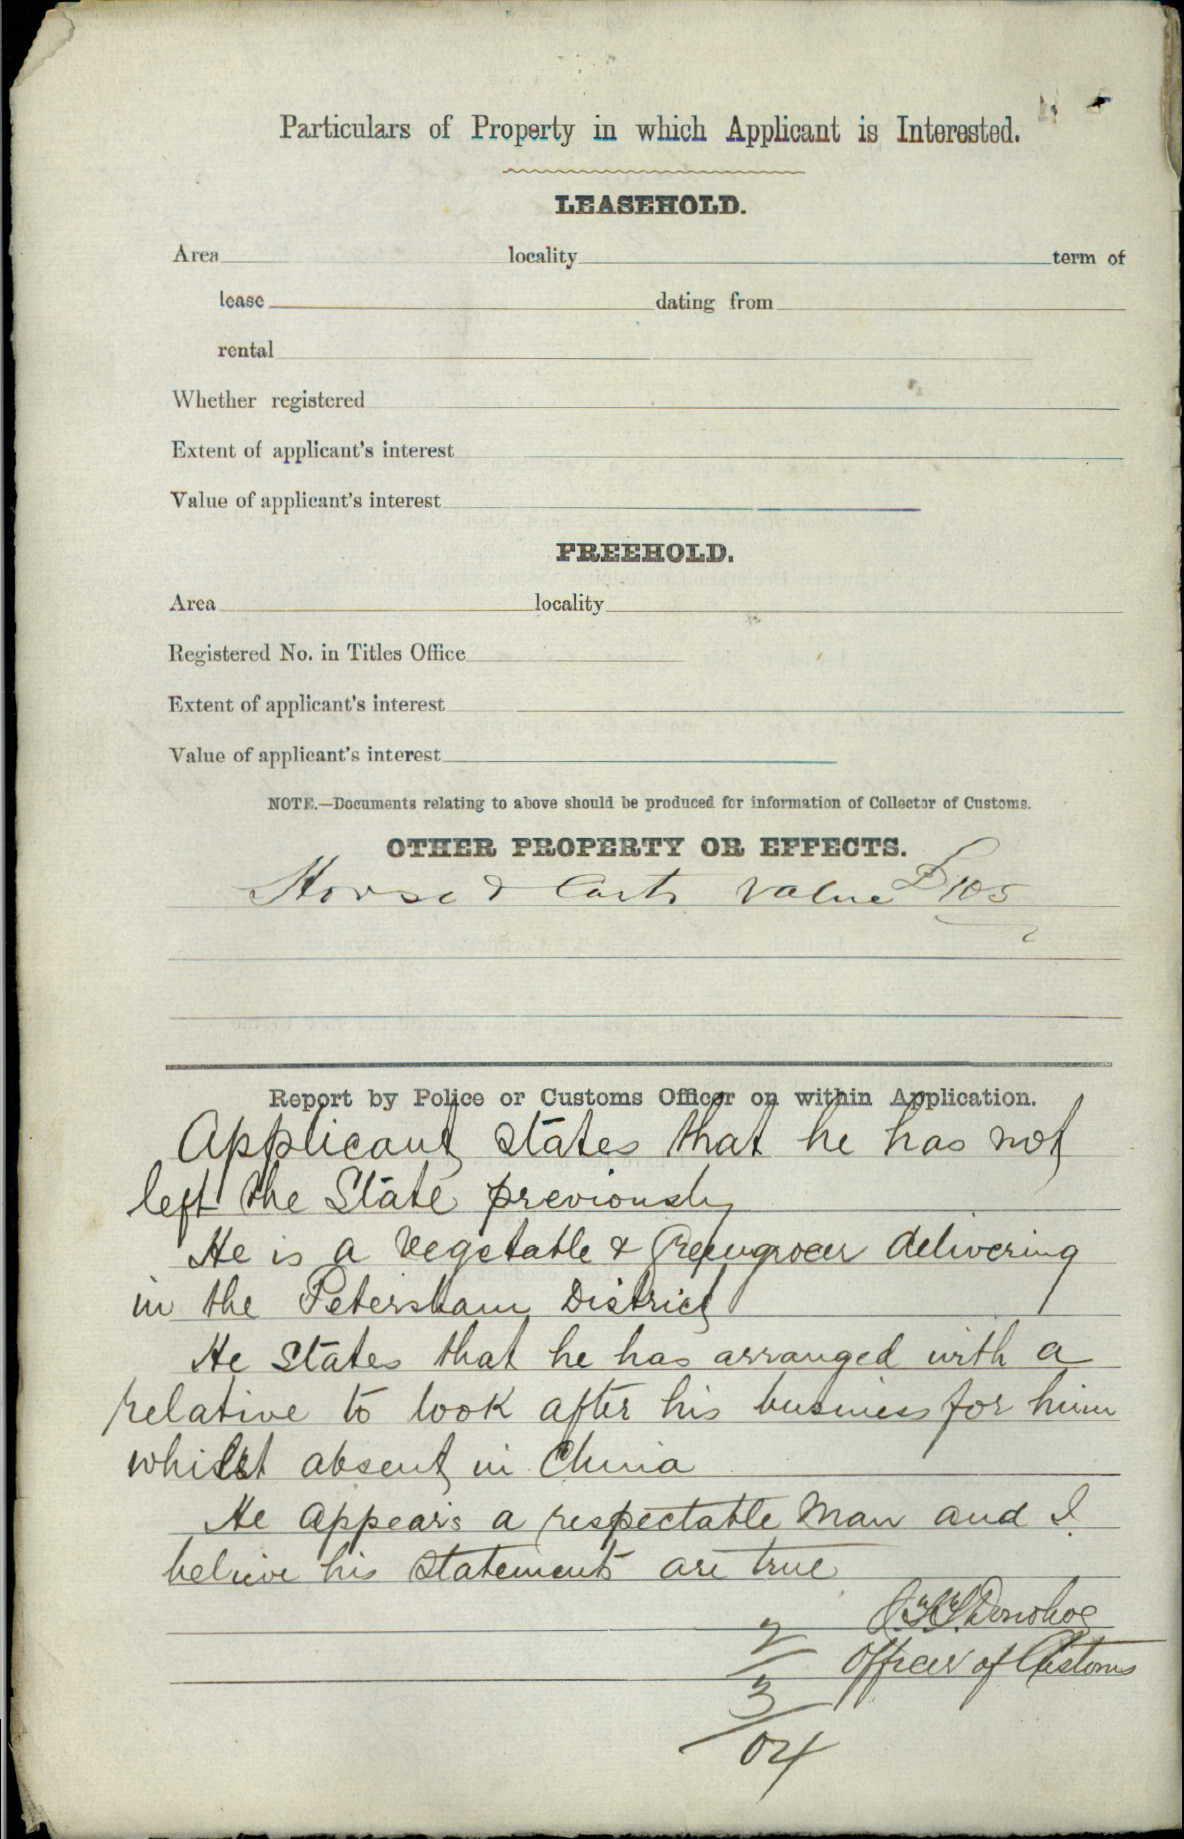 Particulars of Property in which Applicant is Interested.
LEASEHOLD.
Area locality term of
lease dating from
rental
Whether registered
Extent of applicant's interest
Value of applicant's interest
FREEHOLD.
Area locality
Registered No. in Titles Office
Extent of applicant's interest
Value of applicant's interest
NOTE.—Documents relating to above should be produced for information of Collector of Customs.
OTHER PROPERTY OR EFFECTS.
Horse & Carts Value £105
Report by Police or Customs Officer on within Application.
Applicant states that he has not
left the State previously
He is a Vegetable & Greengrocer delivering
in the Petersham District
He states that he has arranged with a
relative to look after his business for him
whilst absent in China
He appears a respectable man and I
believe his statements are true
Donohoe
2 Officer of Customs
3
04